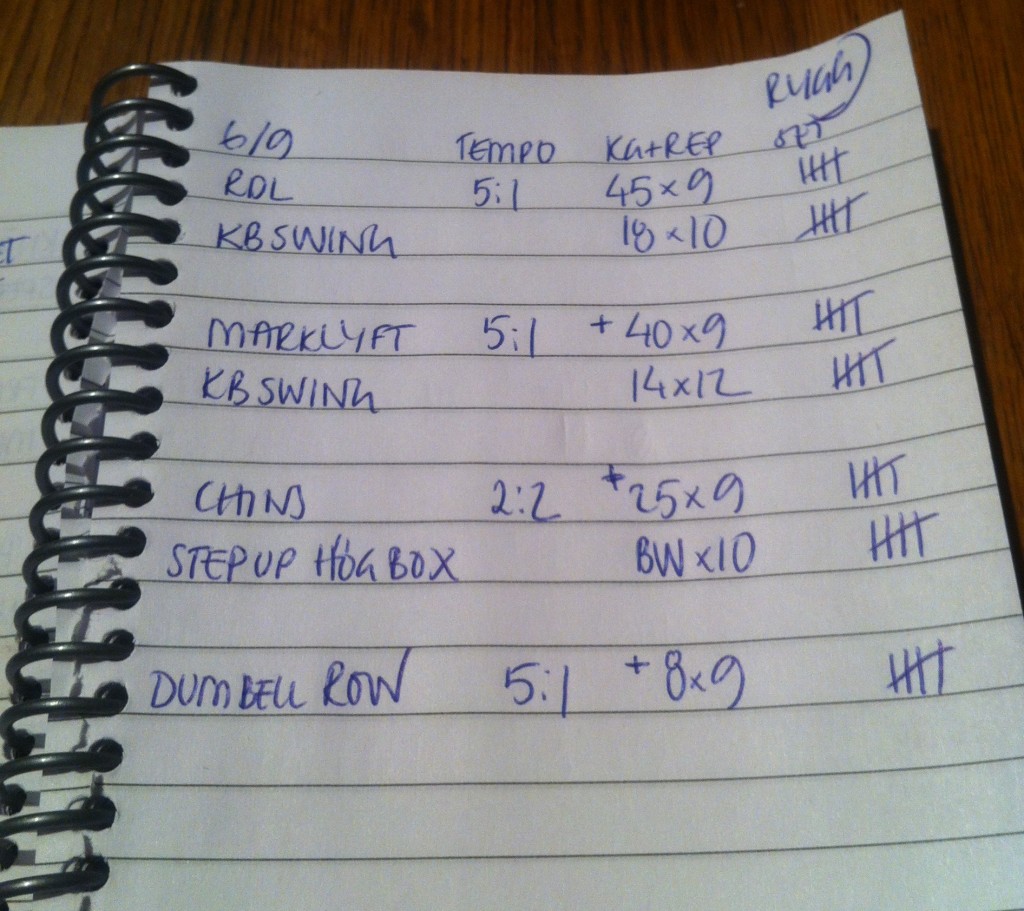 RYGG
6/9 TEMPO KG+REP SET
RDL 5:1 45x9
KB SWING 18x10
MARKLYFT 5:1 +40x9
KB SWING 14x12
CHINS 2:2 +25x9
STEP UP HÖG BOX BW x10
DUMBELL ROW 5:1 +8x9